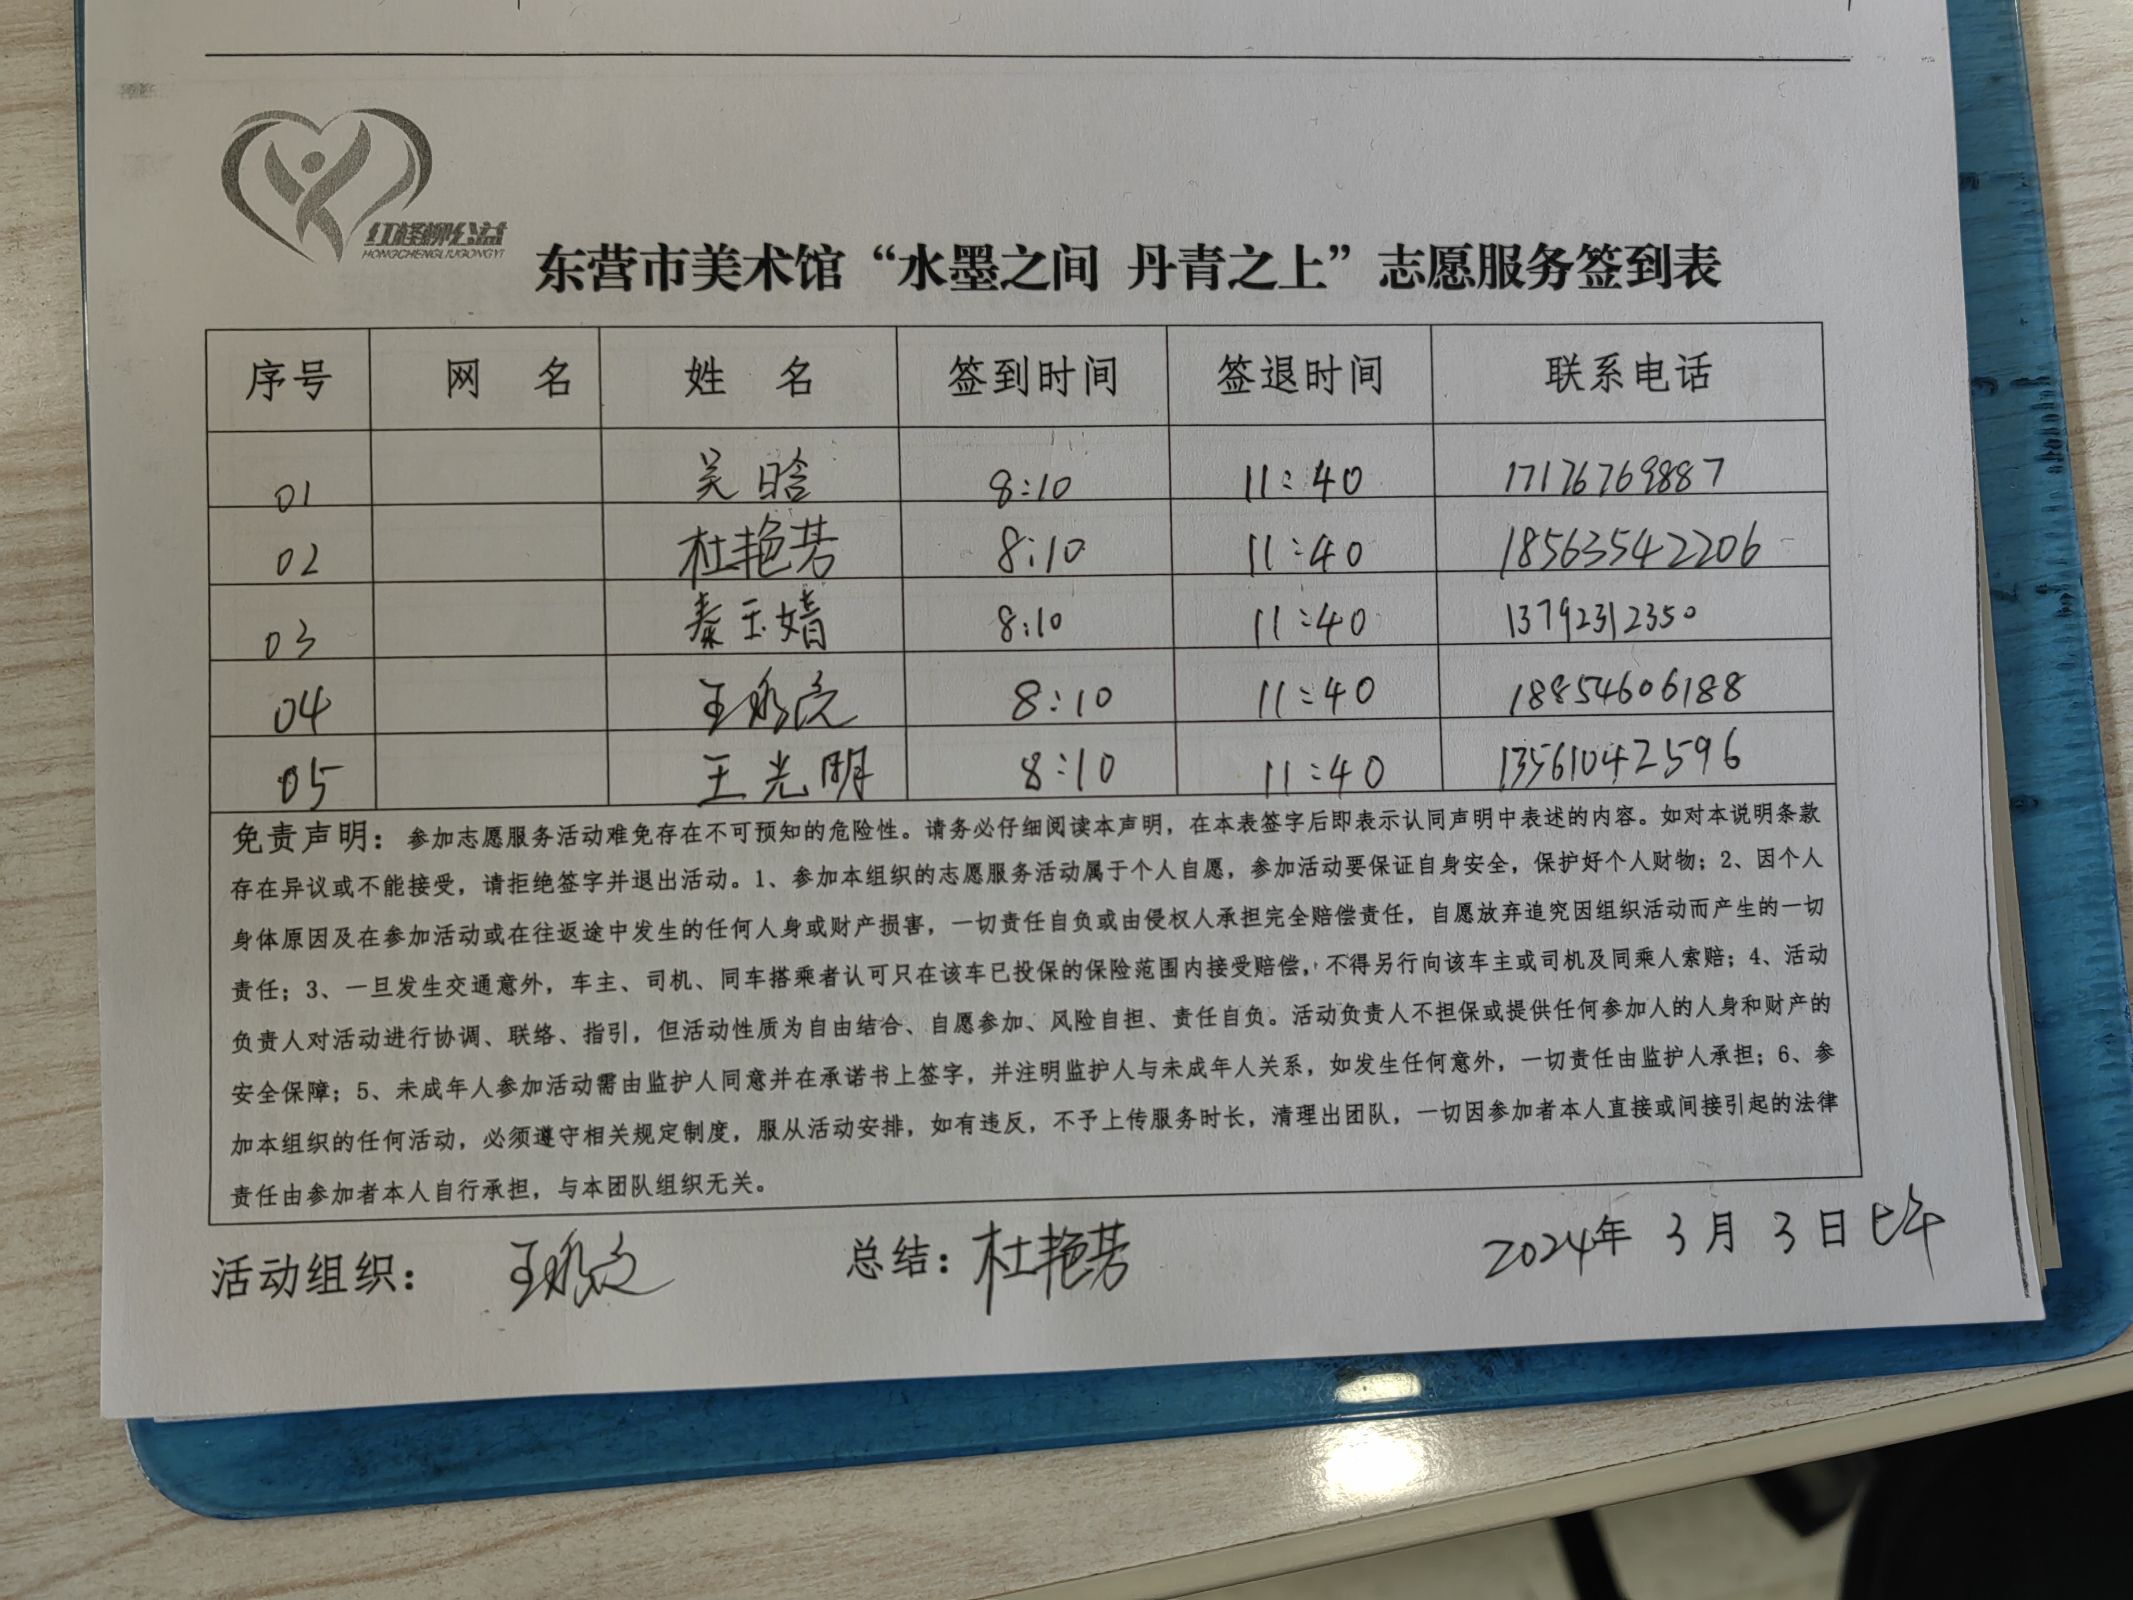 红柽柳公益
HONGCHENGLIUGONGYI
东营市美术馆“水墨之间 丹青之上”志愿服务签到表
序号 网 名 姓 名 签到时间 签退时间 联系电话
01 吴晗 8:10 11:40 17176769887
02 杜艳芳 8:10 11:40 18563542206
03 秦玉婧 8:10 11:40 13792312350
04 王 8:10 11:40 18854606188
05 王光明 8:10 11:40 13561042596
免责声明：参加志愿服务活动难免存在不可预知的危险性。请务必仔细阅读本声明，在本表签字后即表示认同声明中表述的内容。如对本说明条款
存在异议或不能接受，请拒绝签字并退出活动。1、参加本组织的志愿服务活动属于个人自愿，参加活动要保证自身安全，保护好个人财物；2、因个人
身体原因及在参加活动或在往返途中发生的任何人身或财产损害，一切责任自负或由侵权人承担完全赔偿责任，自愿放弃追究因组织活动而产生的一切
责任；3、一旦发生交通意外，车主、司机、同车搭乘者认可只在该车已投保的保险范围内接受赔偿，不得另行向该车主或司机及同乘人索赔；4、活动
负责人对活动进行协调、联络、指引，但活动性质为自由结合、自愿参加、风险自担、责任自负。活动负责人不担保或提供任何参加人的人身和财产的
安全保障；5、未成年人参加活动需由监护人同意并在承诺书上签字，并注明监护人与未成年人关系，如发生任何意外，一切责任由监护人承担；6、参
加本组织的任何活动，必须遵守相关规定制度，服从活动安排，如有违反，不予上传服务时长，清理出团队，一切因参加者本人直接或间接引起的法律
责任由参加者本人自行承担，与本团队组织无关。
活动组织： 王 总结：杜艳芳 2024年 3月 3日上午